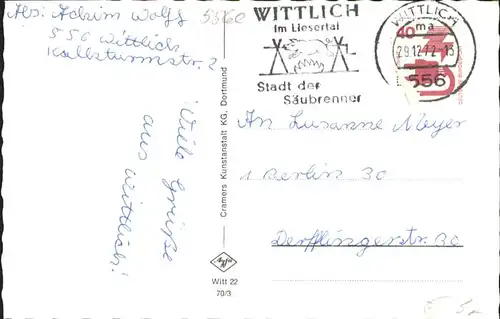 Abs: Achim Wolff
556 Wittlich
Kalkturmstr. 2
53760
WITTLICH
im Liesertal
Stadt der
Säubrenner
WITTLICH
ma
29.12.72-13
556
40
Viele Grüße
aus Wittlich!
Cramers Kunstanstalt KG, Dortmund
An Susanne Meyer
1 Berlin 30
Derfflingerstr. 30
Witt 22
70/3